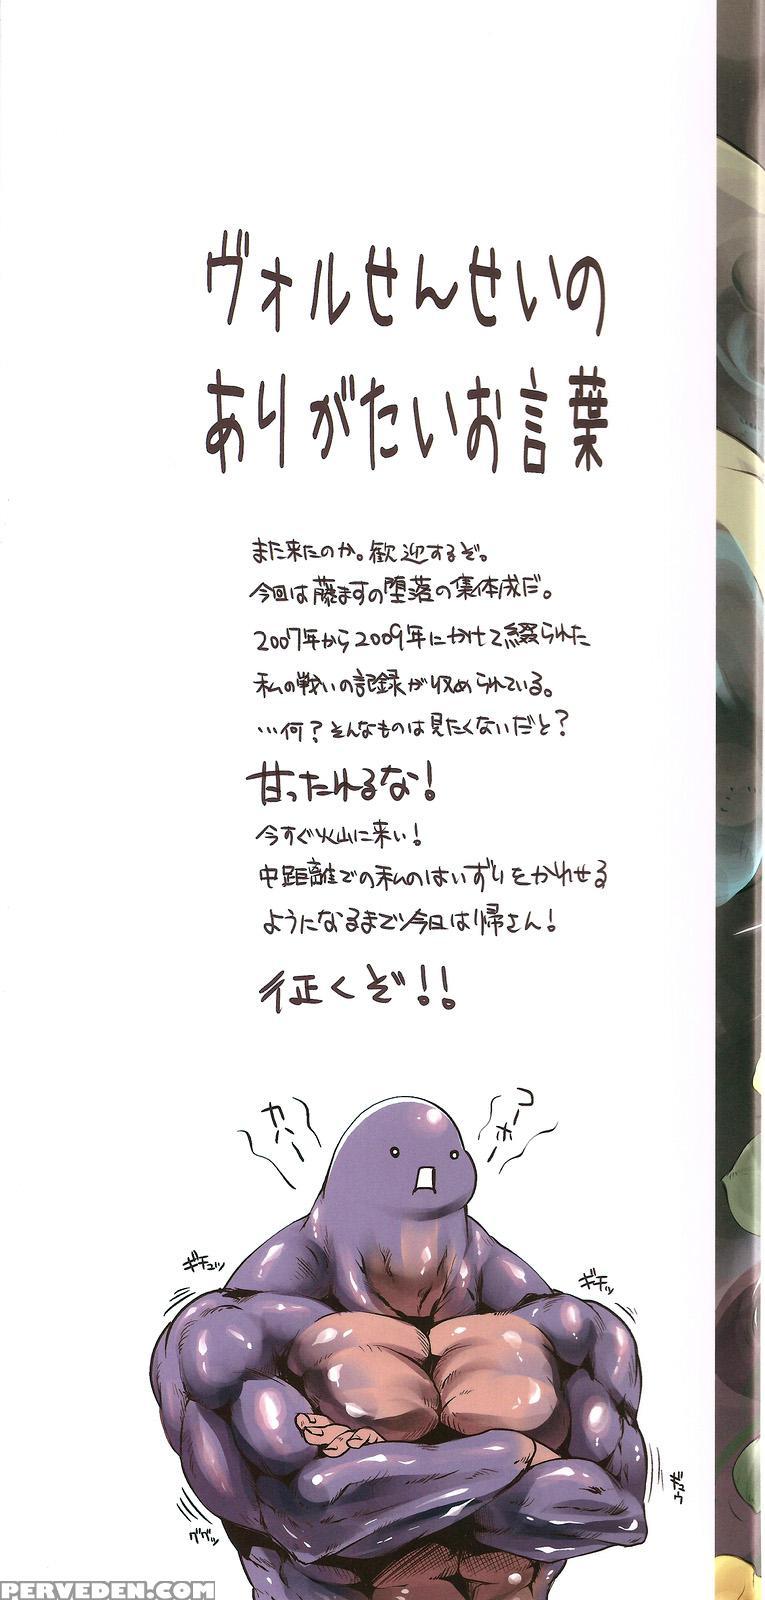 ヴォルせんせいの
ありがたいお言葉
また来たのか。歓迎するぞ。
今回は藤ますの堕落の集体成だ。
2007年から2009年にかけて綴られた
私の戦いの記録が収められている。
…何?そんなものは見たくないだと?
甘ったれるな!
今すぐ火山に来い!
中距離での私のはいずりをかわせる
ようになるまで今日は帰さん!
征くぞ!!
カハー
コーホー
ギチュッ
ギチッ
ググッ
PERVEDEN.COM